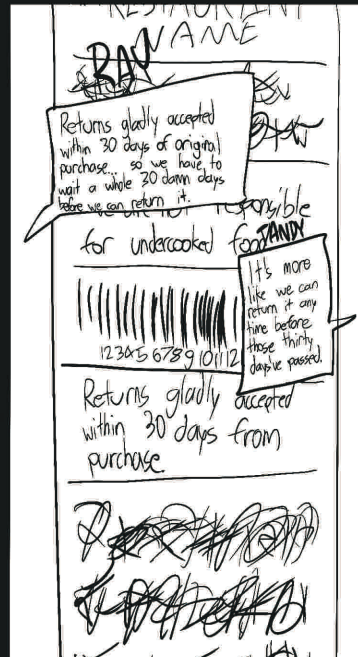 RESTAURANT
NAME
RAW
Returns gladly accepted
within 30 days of original
purchase... so we have to
wait a whole 30 damn days
before we can return it.
responsible
for undercooked food
TANDY
It's more
like we can
return it any
time before
those thirty
days've passed.
123456789101112
Returns gladly accepted
within 30 days from
purchase